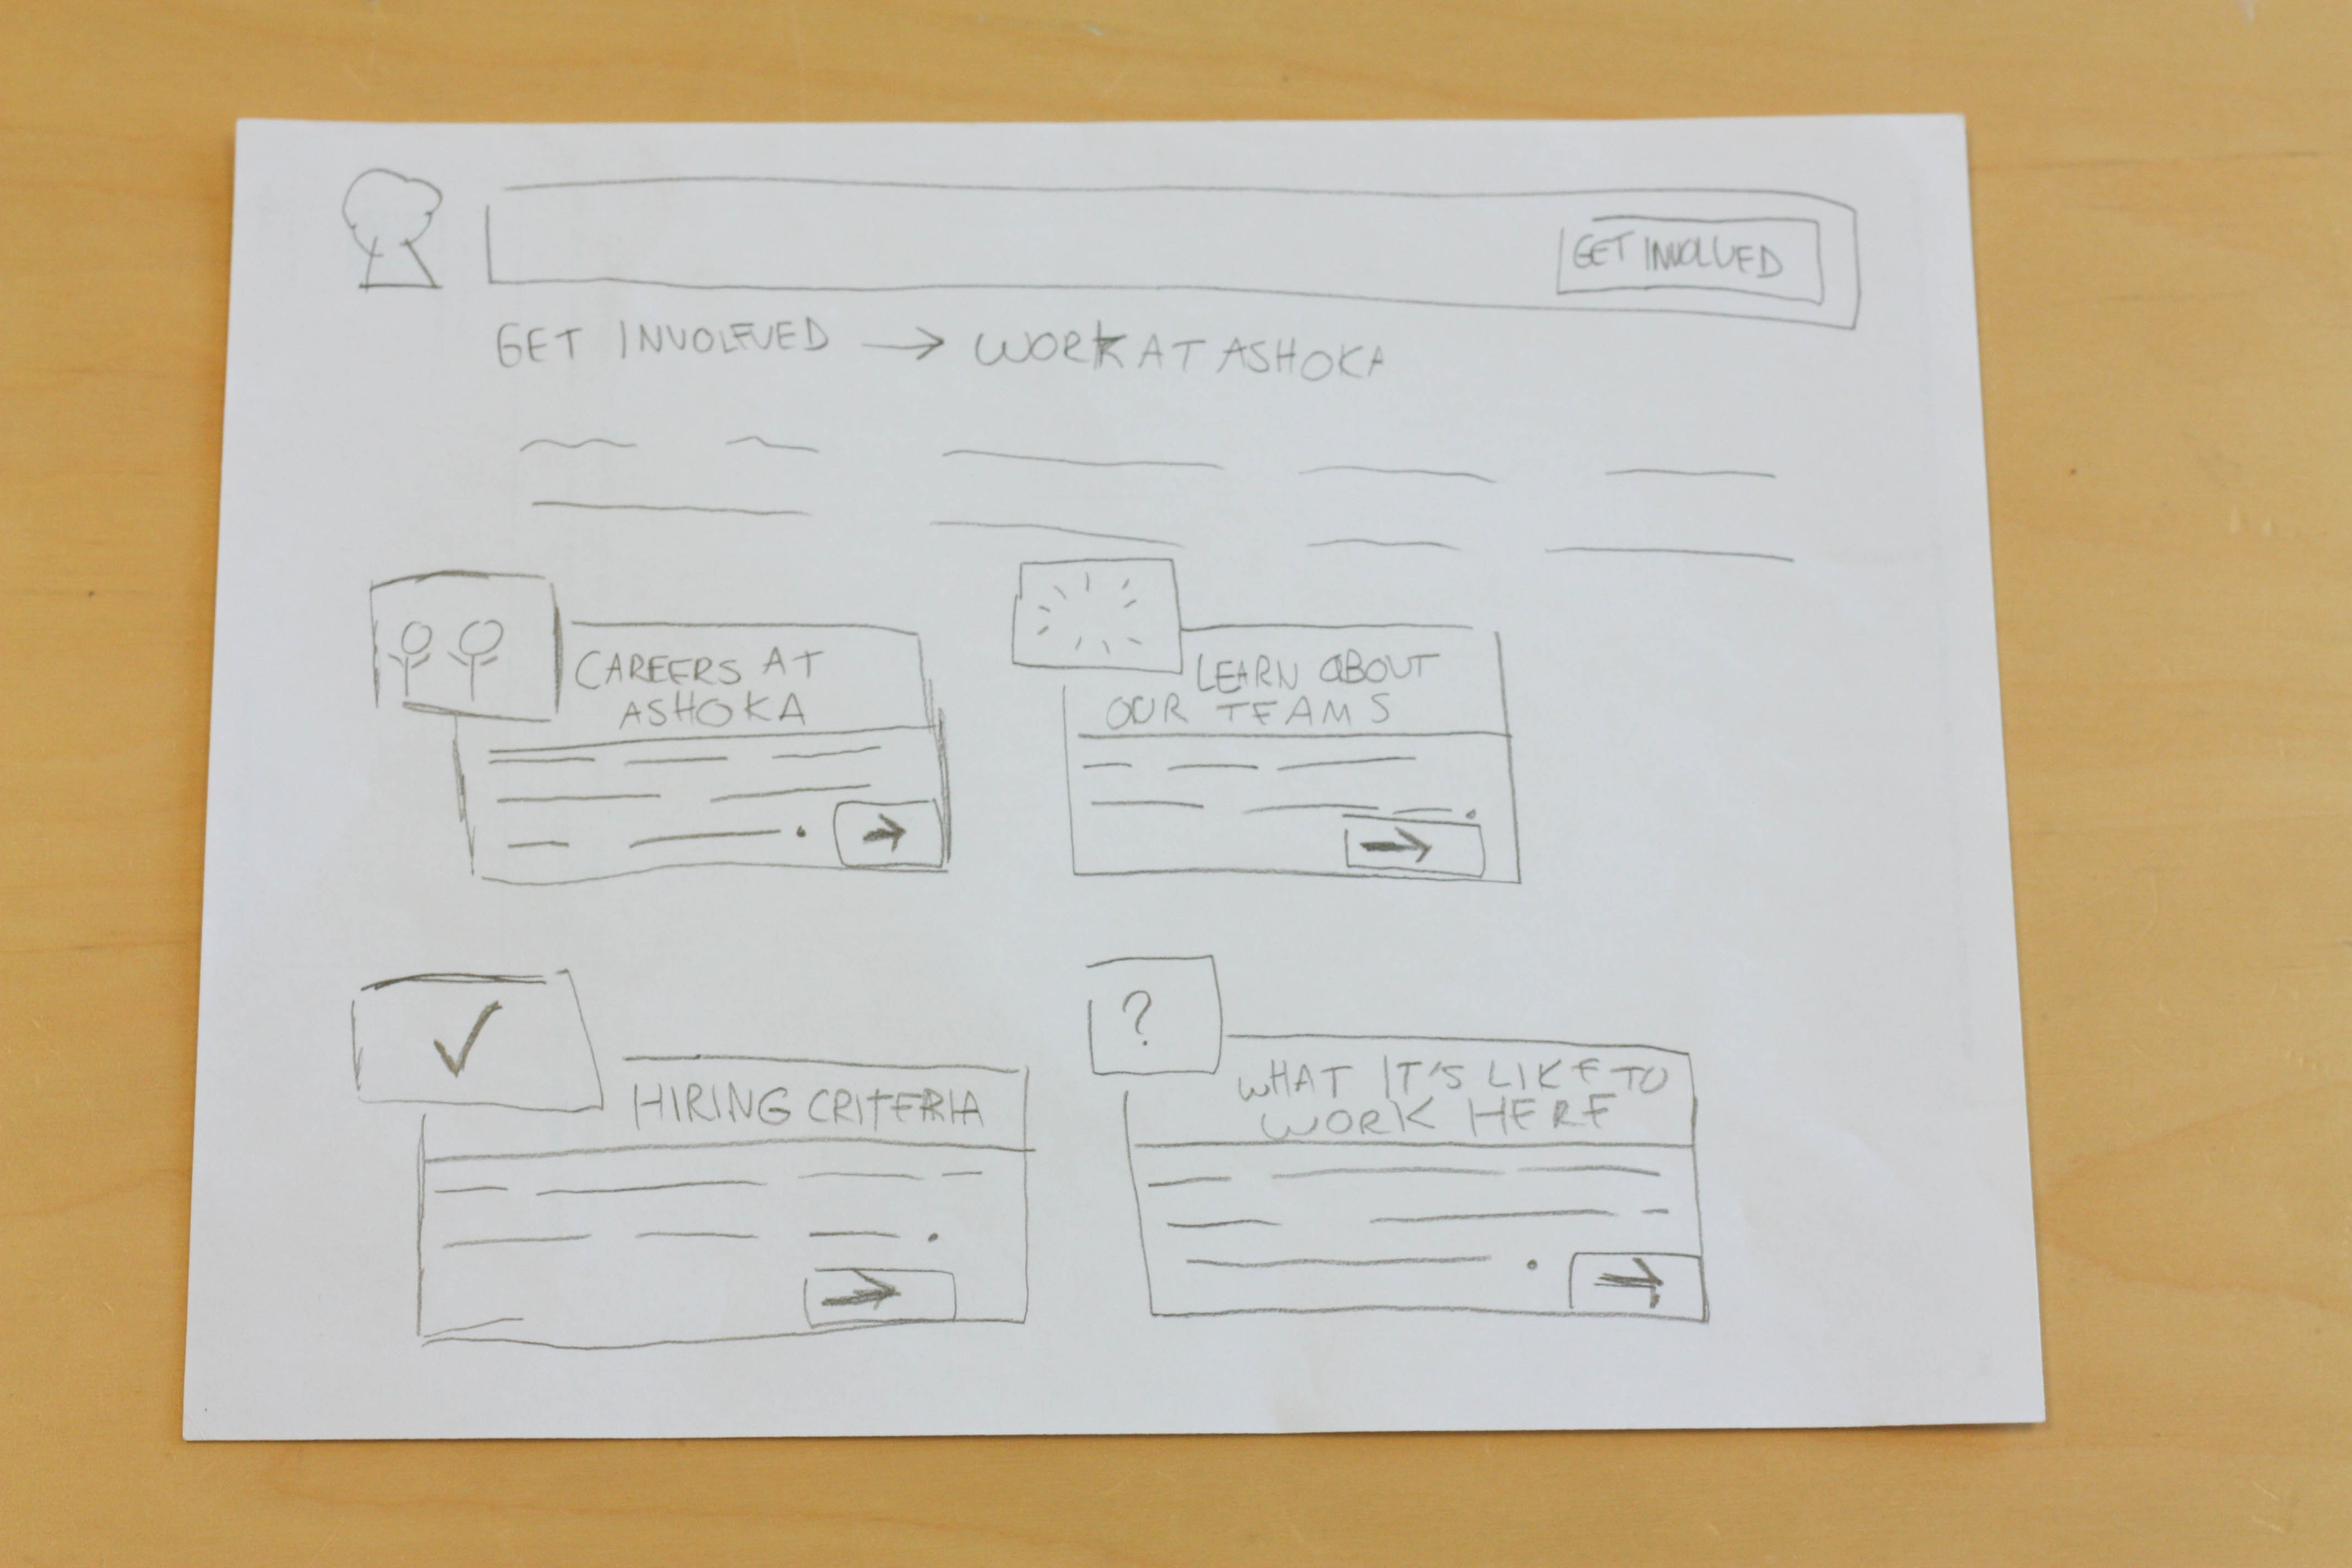 GET INVOLVED
GET INVOLEVED → WORK AT ASHOKA
CAREERS AT
ASHOKA
LEARN ABOUT
OUR TEAMS
HIRING CRITERIA
?
WHAT IT'S LIKE TO
WORK HERE